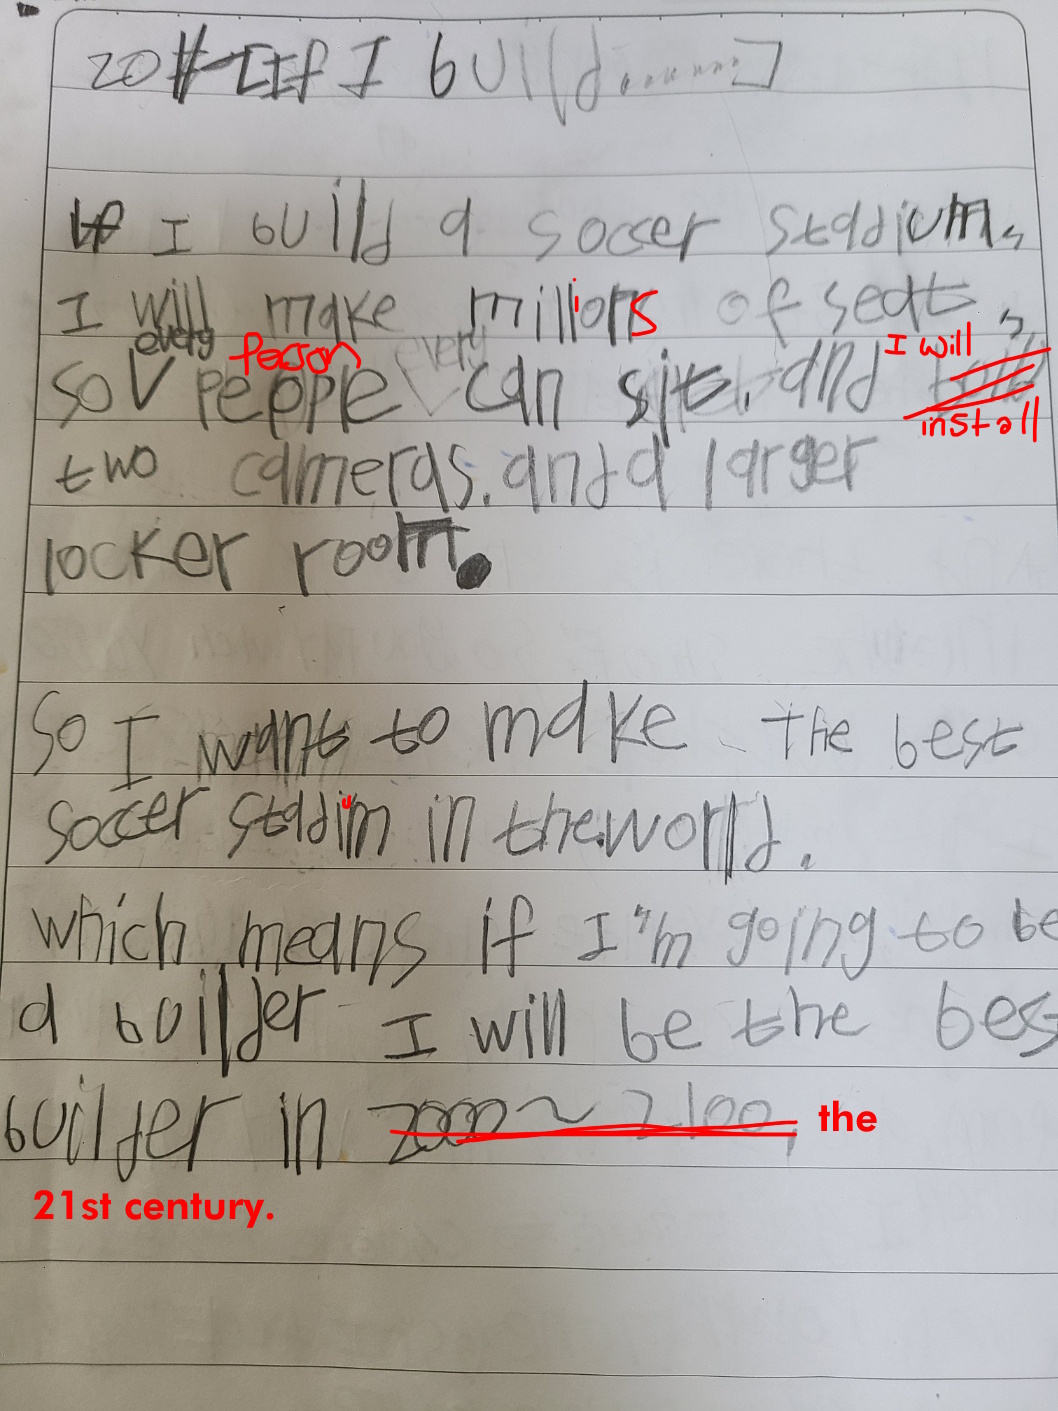 20# [If I build.......]
If I build a soccer stadium,
I will make millions of seats,
every person every I will
so people can sit. and build
install
two cameras. and a larger
locker room.
So I want to make the best
soccer stadium in the world.
which means if I'm going to be
a builder I will be the best
builder in 2000~2100, the
21st century.